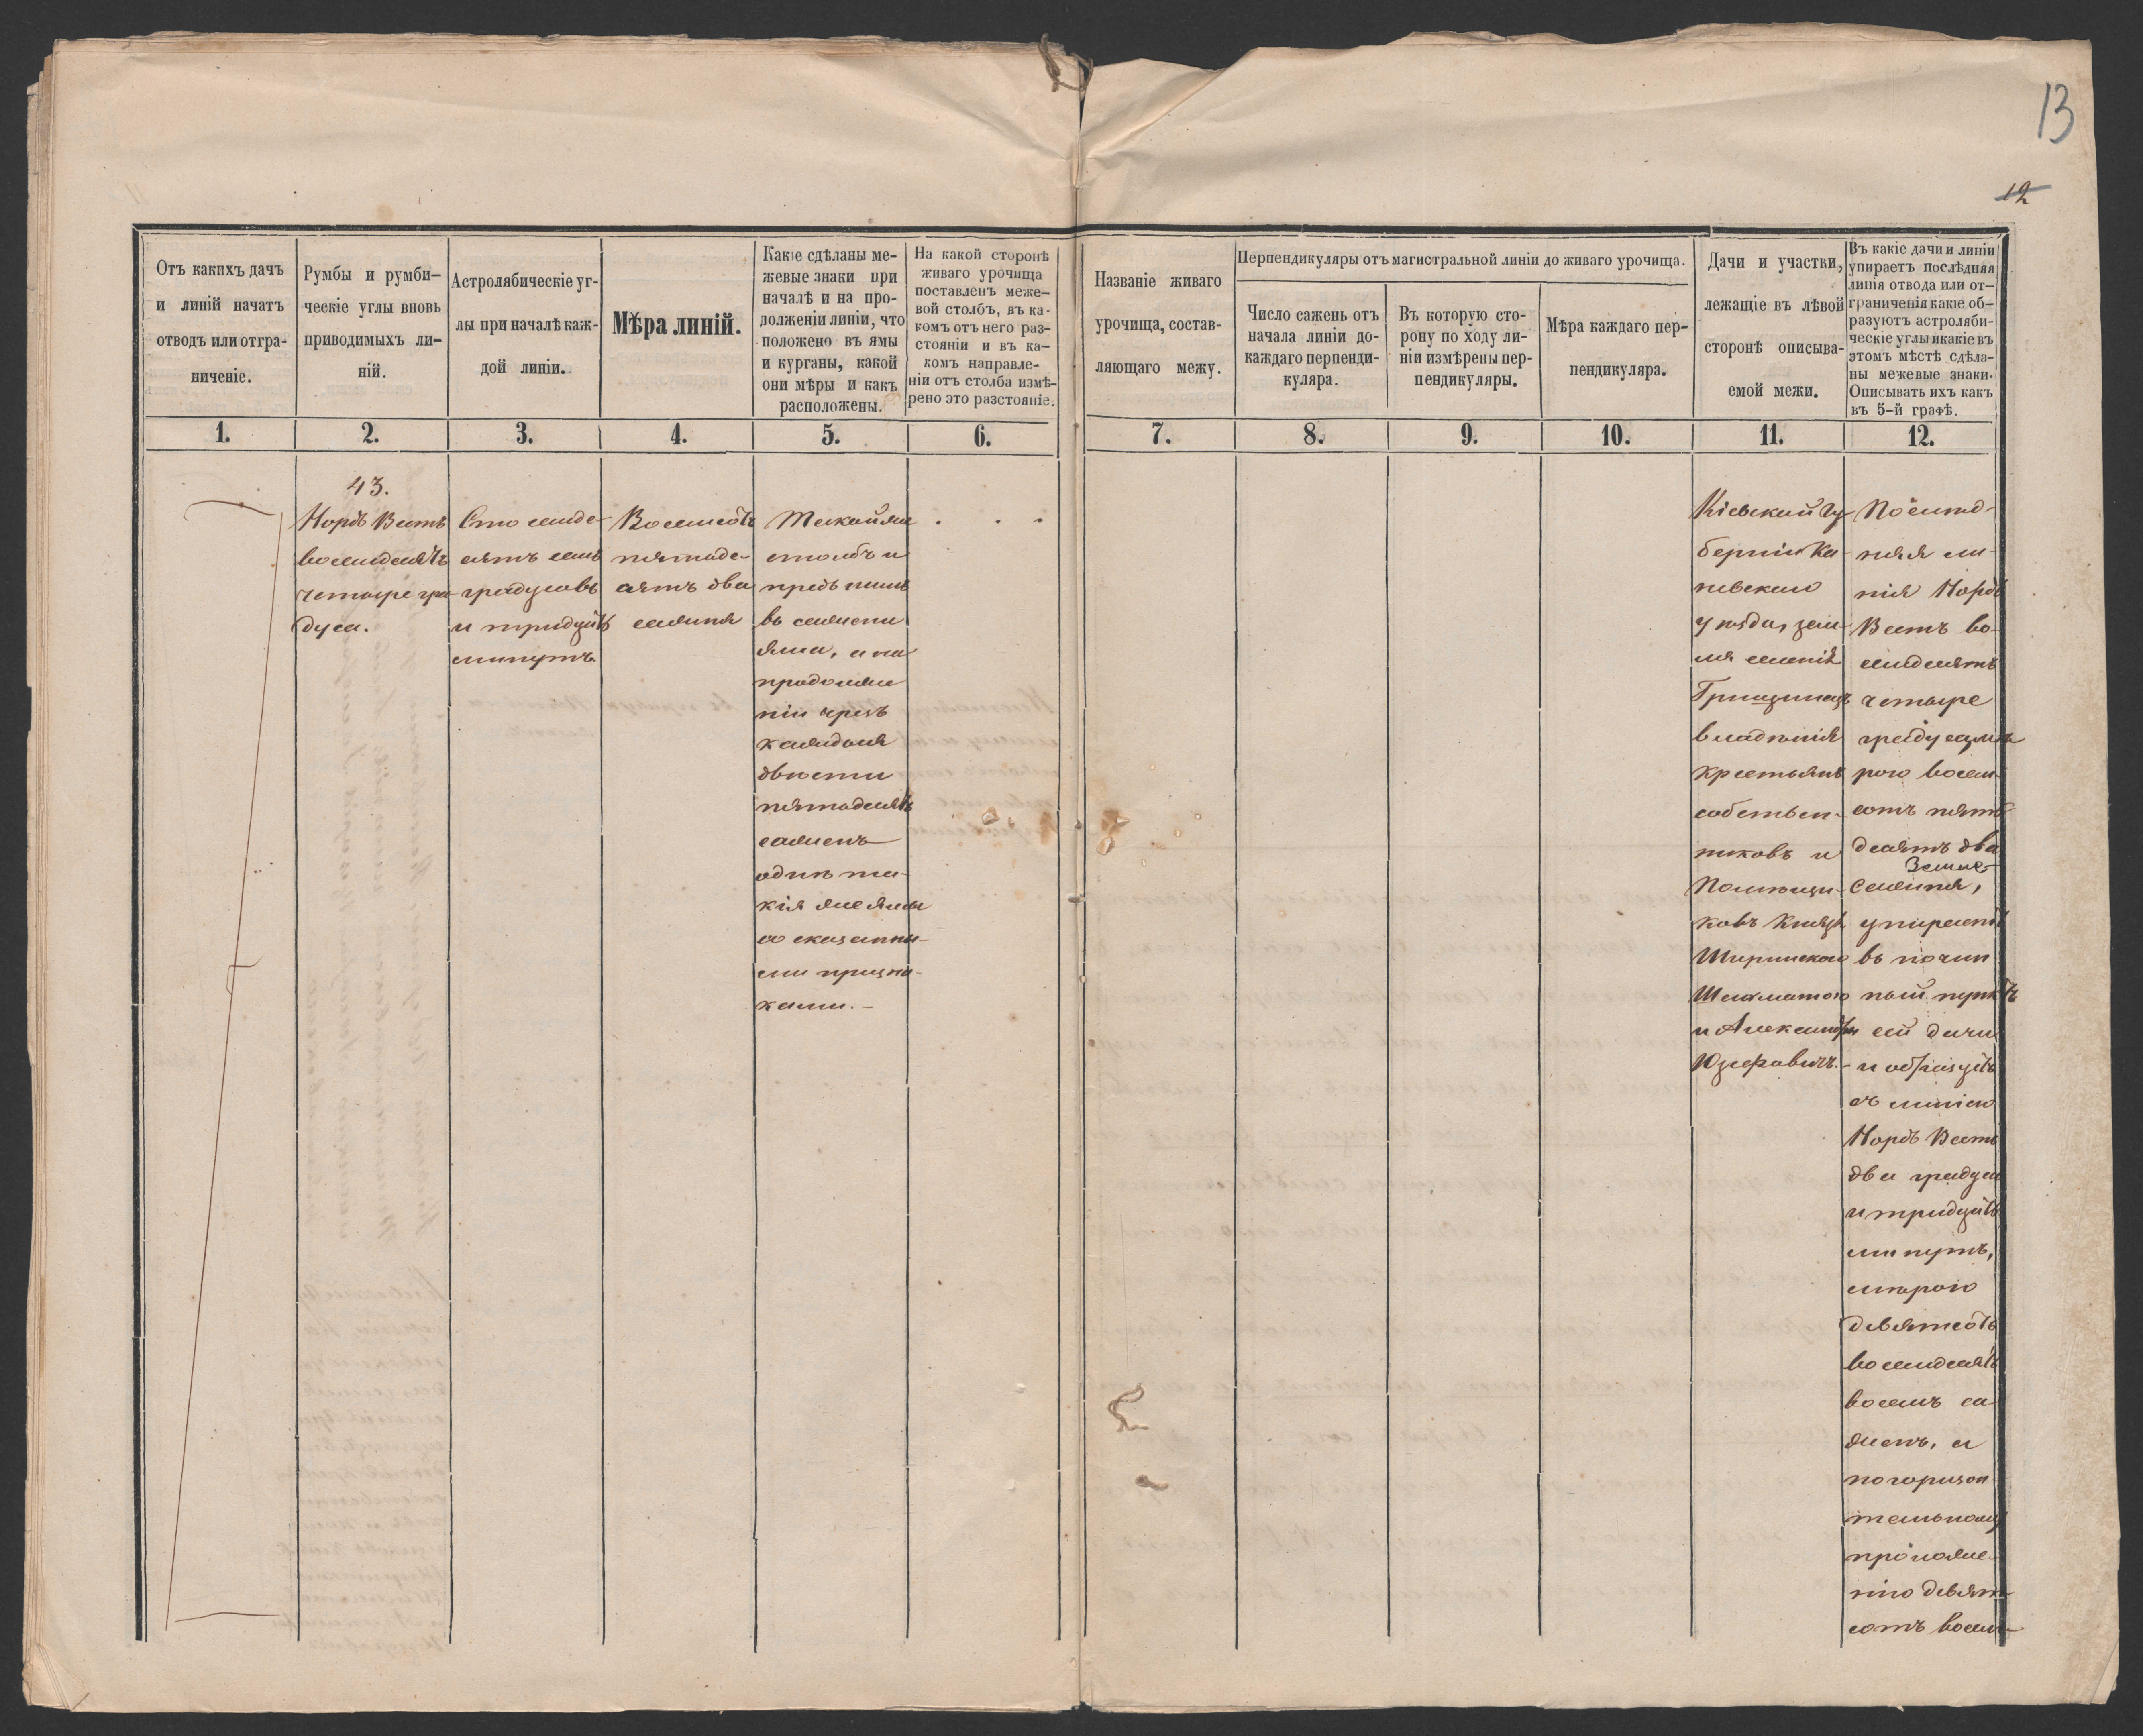 13
12
Отъ какихъ дачъ
и линій начатъ
отводъ или отгра-
ниченіе.
Румбы и румби-
ческіе углы вновь
приводимыхъ ли-
ній.
Астролябическіе уг-
лы при началѣ каж-
дой линіи.
Мѣра линій.
Какіе сдѣланы ме-
жевые знаки при
началѣ и на про-
долженіи линіи, что
положено въ ямы
и курганы, какой
они мѣры и какъ
расположены.
На какой сторонѣ
живаго урочища
поставленъ меже-
вой столбъ, въ ка-
комъ отъ него раз-
стояніи и въ ка-
комъ направле-
ніи отъ столба измѣ-
рено это разстояніе.
Названіе живаго
урочища, состав-
ляющаго межу.
Перпендикуляры отъ магистральной линіи до живаго урочища.
Число сажень отъ
начала линіи до-
каждаго перпенди-
куляра.
Въ которую сто-
рону по ходу ли-
ніи измѣрены пер-
пендикуляры.
Мѣра каждаго пер-
пендикуляра.
Дачи и участки,
лежащіе въ лѣвой
сторонѣ описыва-
емой межи.
Въ какіе дачи и линіи
упираетъ послѣдняя
линія отвода или от-
граниченія какіе об-
разуютъ астроляби-
ческіе углы и какіе въ
этомъ мѣстѣ сдѣла-
ны межевые знаки.
Описывать ихъ какъ
въ 5-й графѣ.
1. 2. 3. 4. 5. 6. 7. 8. 9. 10. 11. 12.
43.
Нордъ Вестъ
восемдесятъ
четыре гра-
дуса.
Сто семде-
сятъ семь
градусовъ
и тридцать
минутъ
Восемсотъ
пятьде-
сятъ два
сажня
Такой же
столбъ и
предъ нимъ
въ сажени
яма, а на
продолже
ніи чрезъ
каждыя
двѣсти
пятьдесятъ
сажень
одна та-
кія же ямы
со сказанны-
ми призна-
ками. –
Кіевской Гу-
берніи Ка-
невскаго
уѣзда, зем-
ля селенія
Грищинецъ
владѣнія
крестьянъ
собствен-
никовъ и
Помѣщи-
ковъ Князя
Ширинскаго
Шихматого
и Александра
Юзефовичъ. –
Послѣд-
няя ли-
нія Нордъ
Вестъ во-
семдесятъ
четыре
градуса, мѣ-
рою восем-
сотъ пять
десятъ два
сажня,
упираетъ
въ почин
ный пунктъ
сей дачи
и образуетъ
съ линіею
Нордъ Вестъ
два градуса
и тридцать
минутъ,
мѣрою
девятьсотъ
восемдесятъ
восемъ са-
жень, а
по горизон
тальному
проложе-
нію девят-
сотъ восем-